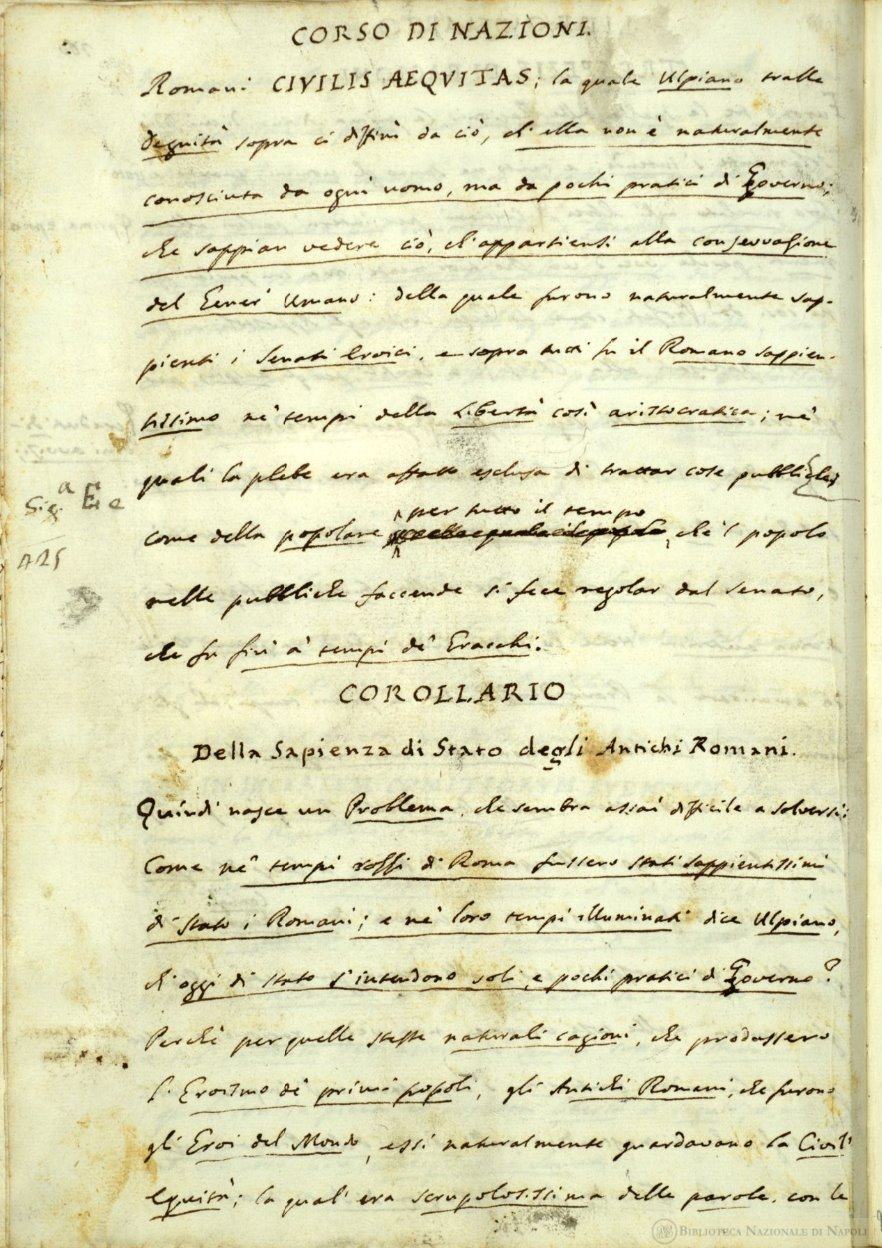 CORSO DI NAZIONI.
Romani CIVILIS AEQVITAS; la quale Ulpiano tralle
Degnità sopra ci diffinì da ciò, ch'ella non è naturalmente
conosciuta da ogni uomo, ma da pochi pratici di Governo;
che sappian vedere ciò, ch'appartiensi alla conservazione
del Gener' Umano: della quale furono naturalmente sap-
pienti i Senati Eroici, e sopra tutti fu il Romano sappien-
tissimo ne' tempi della Libertà così aristocratica; ne'
quali la plebe era affatto esclusa di trattar cose pubbliche;
per tutto il tempo
come della popolare, che 'l popolo
nelle pubbliche faccende si fece regolar dal Senato,
che fu fin' a' tempi de' Gracchi.
Sig.a E e
A 25
COROLLARIO
Della Sapienza di Stato degli Antichi Romani.
Quindi nasce un Problema, che sembra assai difficile a solversi:
Come ne' tempi rozzi di Roma fussero stati sappientissimi
di Stato i Romani; e ne' loro tempi illuminati dice Ulpiano,
ch'oggi di Stato s'intendono soli, e pochi pratici di Governo?
Perchè per quelle stesse naturali cagioni, che produssero
l'Eroismo de' primi popoli, gli Antichi Romani, che furono
gli Eroi del Mondo, essi naturalmente guardavano la Civil'
Equità; la qual' era scrupolosissima delle parole, con le
BIBLIOTECA NAZIONALE DI NAPOLI